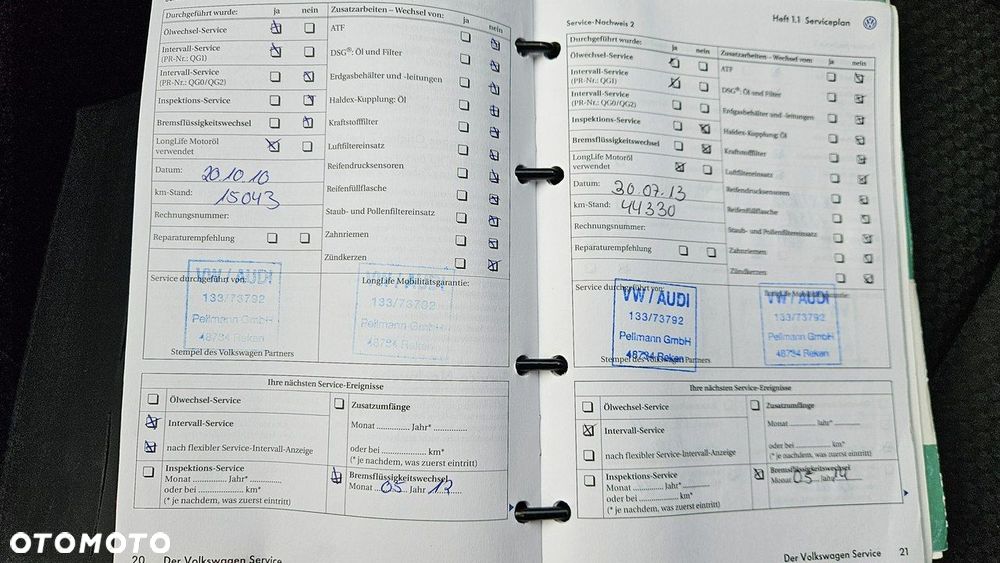 Durchgeführt wurde: ja nein
Ölwechsel-Service
Intervall-Service
(PR-Nr.: QG1)
Intervall-Service
(PR-Nr.: QG0/QG2)
Inspektions-Service
Bremsflüssigkeitswechsel
LongLife Motoröl
verwendet
Datum: 20.10.10
km-Stand: 15043
Rechnungsnummer:
Reparaturempfehlung
Zusatzarbeiten – Wechsel von: ja nein
ATF
DSG®: Öl und Filter
Erdgasbehälter und -leitungen
Haldex-Kupplung: Öl
Kraftstofffilter
Luftfiltereinsatz
Reifendrucksensoren
Reifenfüllflasche
Staub- und Pollenfiltereinsatz
Zahnriemen
Zündkerzen
Service durchgeführt von:
VW / AUDI
133/73792
Pellmann GmbH
48734 Reken
Stempel des Volkswagen Partners
LongLife Mobilitätsgarantie:
VW / AUDI
133/73792
Pellmann GmbH
48734 Reken
Ihre nächsten Service-Ereignisse
Ölwechsel-Service
Intervall-Service
nach flexibler Service-Intervall-Anzeige
Inspektions-Service
Monat ............. Jahr*.............
oder bei ................... km*
(* je nachdem, was zuerst eintritt)
Zusatzumfänge
Monat ............. Jahr*.............
oder bei ................... km*
(* je nachdem, was zuerst eintritt)
Bremsflüssigkeitswechsel
Monat 05 Jahr 12
20 Der Volkswagen Service
OTOMOTO
Service-Nachweis 2
Heft 1.1 Serviceplan
Durchgeführt wurde: ja nein
Ölwechsel-Service
Intervall-Service
(PR-Nr.: QG1)
Intervall-Service
(PR-Nr.: QG0/QG2)
Inspektions-Service
Bremsflüssigkeitswechsel
LongLife Motoröl
verwendet
Datum: 30.07.13
km-Stand: 44330
Rechnungsnummer:
Reparaturempfehlung
Zusatzarbeiten – Wechsel von: ja nein
ATF
DSG®: Öl und Filter
Erdgasbehälter und -leitungen
Haldex-Kupplung: Öl
Kraftstofffilter
Luftfiltereinsatz
Reifendrucksensoren
Reifenfüllflasche
Staub- und Pollenfiltereinsatz
Zahnriemen
Zündkerzen
Service durchgeführt von:
VW / AUDI
133/73792
Pellmann GmbH
48734 Reken
Stempel des Volkswagen Partners
LongLife Mobilitätsgarantie:
VW / AUDI
133/73792
Pellmann GmbH
48734 Reken
Ihre nächsten Service-Ereignisse
Ölwechsel-Service
Intervall-Service
nach flexibler Service-Intervall-Anzeige
Inspektions-Service
Monat ............. Jahr*.............
oder bei ................... km*
(* je nachdem, was zuerst eintritt)
Zusatzumfänge
Monat ............. Jahr*.............
oder bei ................... km*
(* je nachdem, was zuerst eintritt)
Bremsflüssigkeitswechsel
Monat 05 Jahr 14
Der Volkswagen Service 21